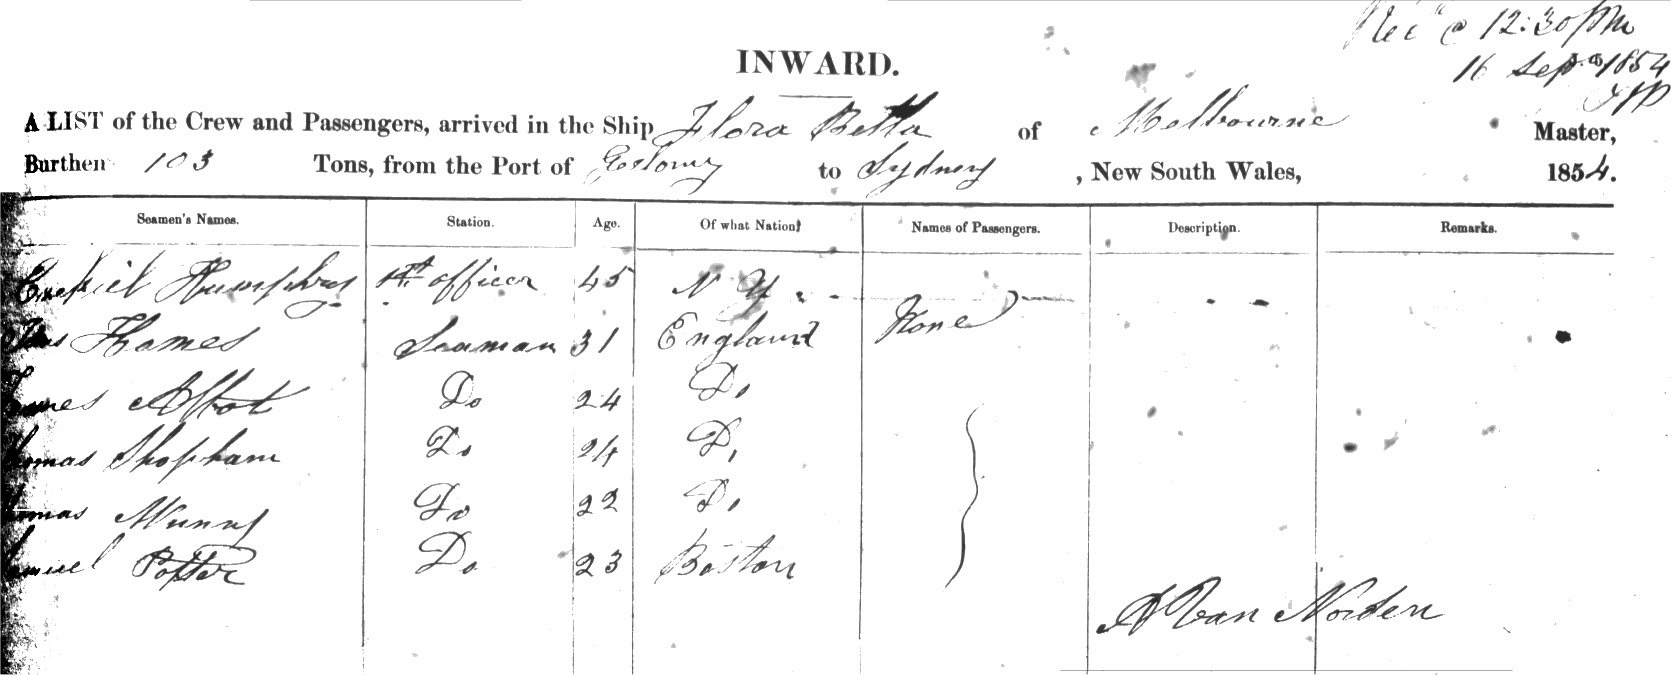 Rec'd @ 12:30 PM
16 Sep. 1854
INWARD.
A LIST of the Crew and Passengers, arrived in the Ship Flora Bella of Melbourne Master,
Burthen 103 Tons, from the Port of to Sydney , New South Wales, 1854.
Seamen's Names. Station. Age. Of what Nation? Names of Passengers. Description. Remarks.
Ezekiel Humphrys 1st officer 45 N Y
Thames Seaman 31 England None
James Abbot Do 24 Do
Thomas Shopham Do 24 Do
Thomas Do 22 Do
Samuel Potter Do 23 Boston
A Van Norden